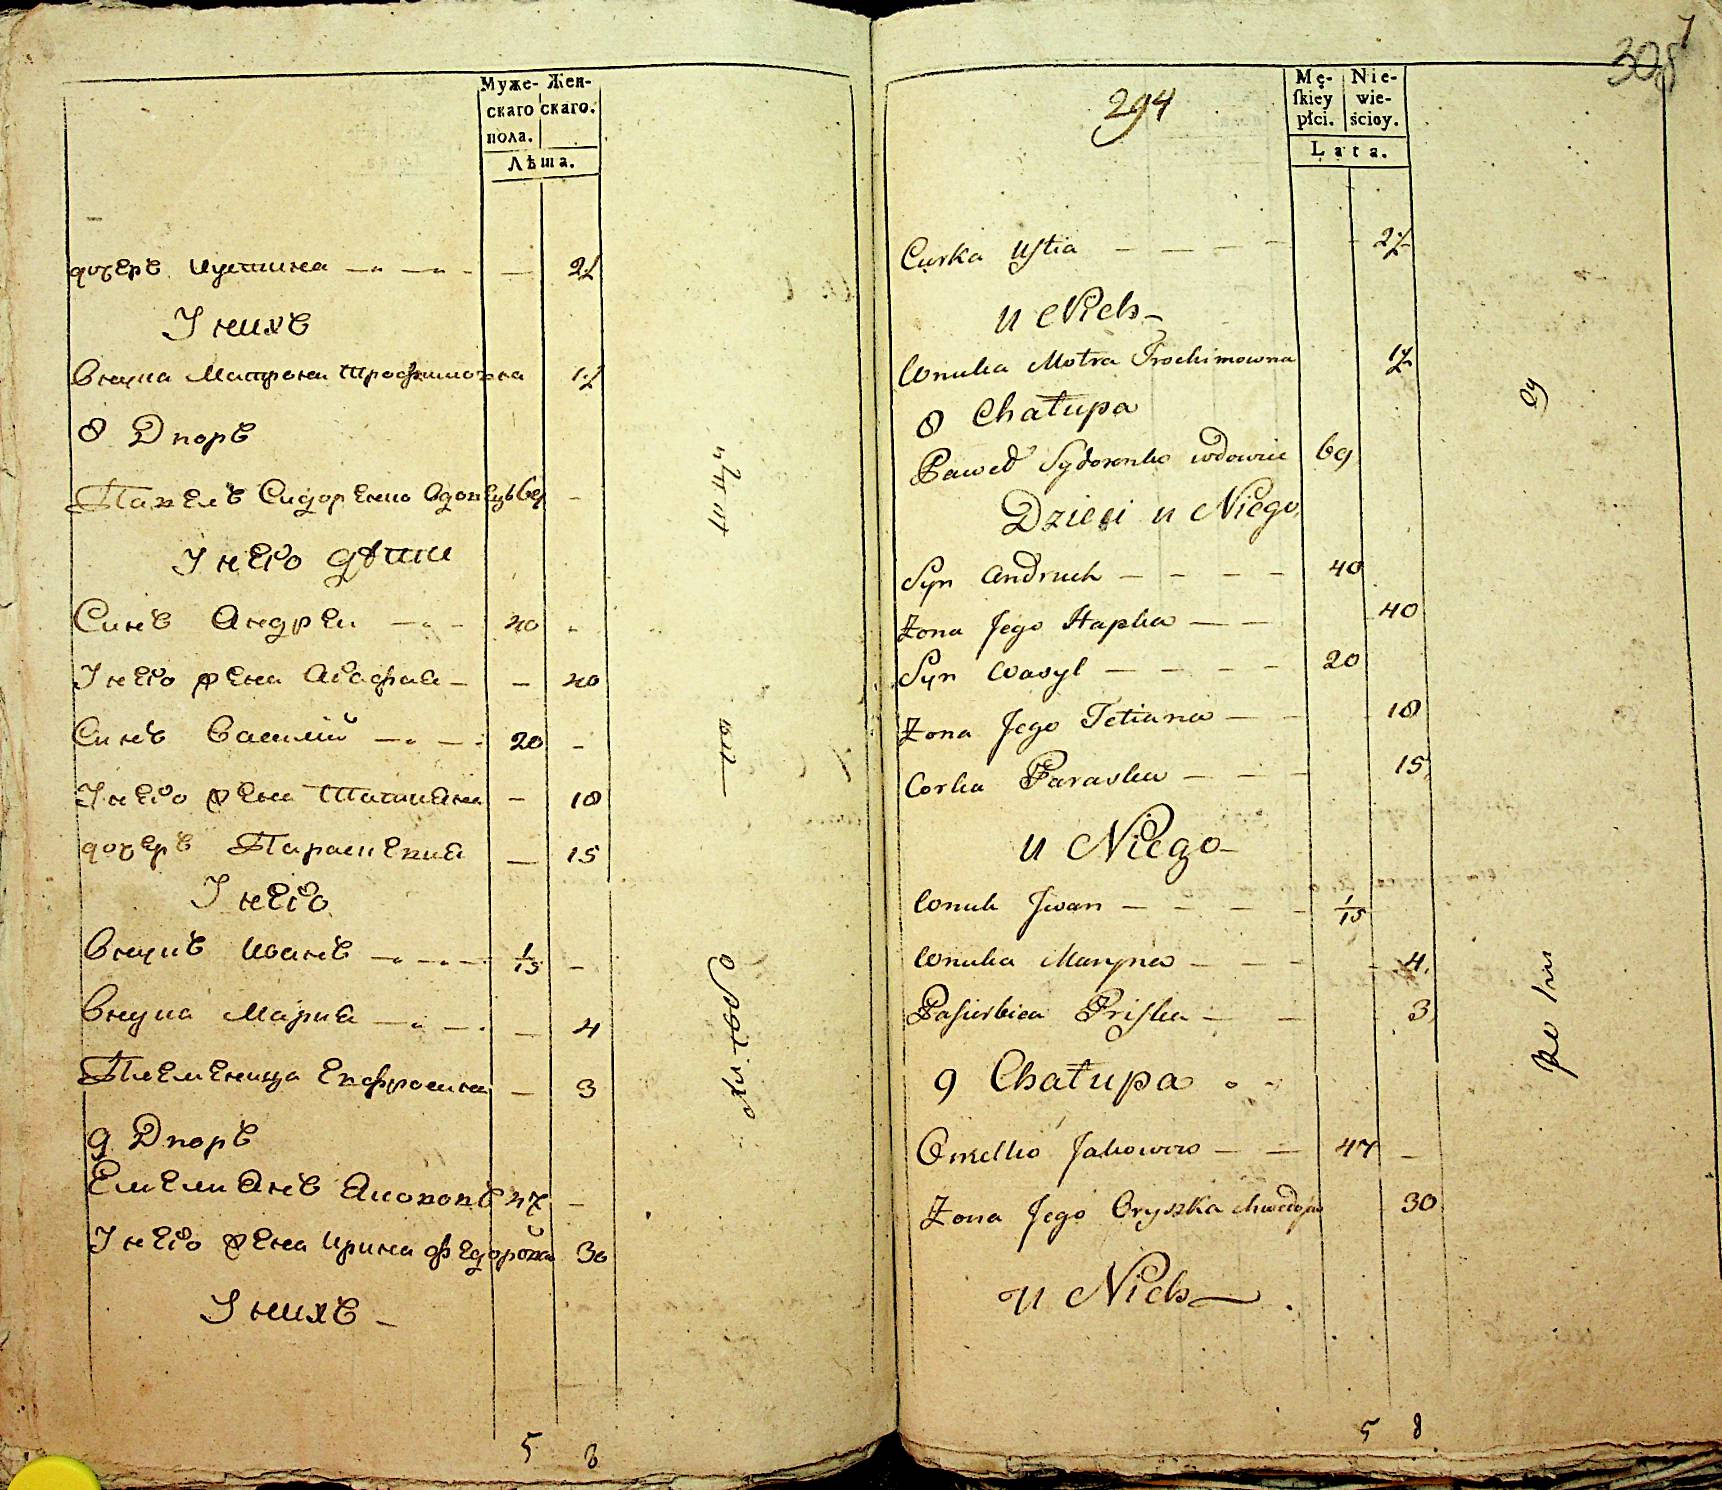 Муже- Жен-
скаго скаго.
пола.
Лѣта.
дочерь Иустина 2/1
У нихъ
Внука Матрона Трофимовна 1/1
8 Дворъ
Павелъ Сидоренко вдовецъ 69
У него дѣти
Синъ Андреи 40
У него жена Агафия 40
Синъ Василій 20
У него жена Татияна 18
дочеръ Параскевия 15
У него
Внукъ Иванъ 1/15
Внука Мария 4
Племеница Евфросина 3
9 Дворъ
Емелиянъ Якововъ 47
У него жена Ирина Федорова 30
У нихъ
5 8
308
294
Mę- Nie-
ſkiey wie-
płci. ściey.
Lata.
Curka Uſtia 2/1
U Nich
Wnuka Motra Trochimowna 1/1
8 Chałupa
Paweł Sydorenko wdowiec 69
Dzieci u Niego
Syn Andruch 40
Żona Jego Hapka 40
Syn Wasyl 20
Żona Jego Tetiana 18
Corka Paraska 15
U Niego
Wnuk Jwan 1/15
Wnuka Maryna 4
Paſierbica Priſka 3
9 Chałupa
Omelko Jakowow 47
Żona Jego Oryszka 30
U Nich
5 8